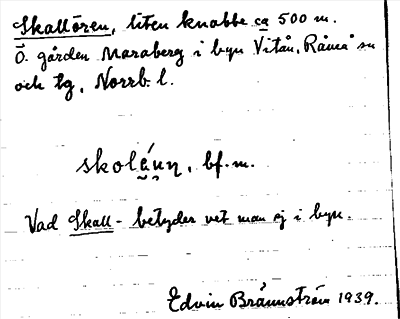 Skallören, liten knabbe ca 500 m.
Ö. gården Maraberg i byn Vitån, Råneå sn
och tg, Norrb. l.
skolä́nn, bf. m.
Vad Skall- betyder vet man ej i byn.
Edvin Brännström 1939.